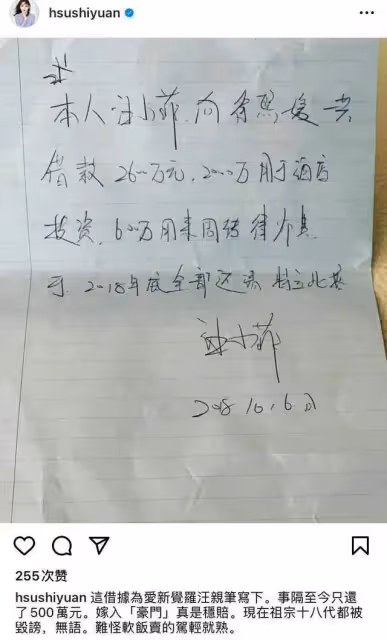 hsushiyuan
本人汪小菲向徐熙媛共
借款2600万元,2000万用于酒店
投资,600万用来周转
于2018年底全部还清 特立此
汪小菲
255次赞
hsushiyuan 這借據為愛新覺羅汪親筆寫下。事隔至今只還
了500萬元。嫁入「豪門」真是穩賠。現在祖宗十八代都被
毀謗，無語。難怪軟飯賣的駕輕就熟。